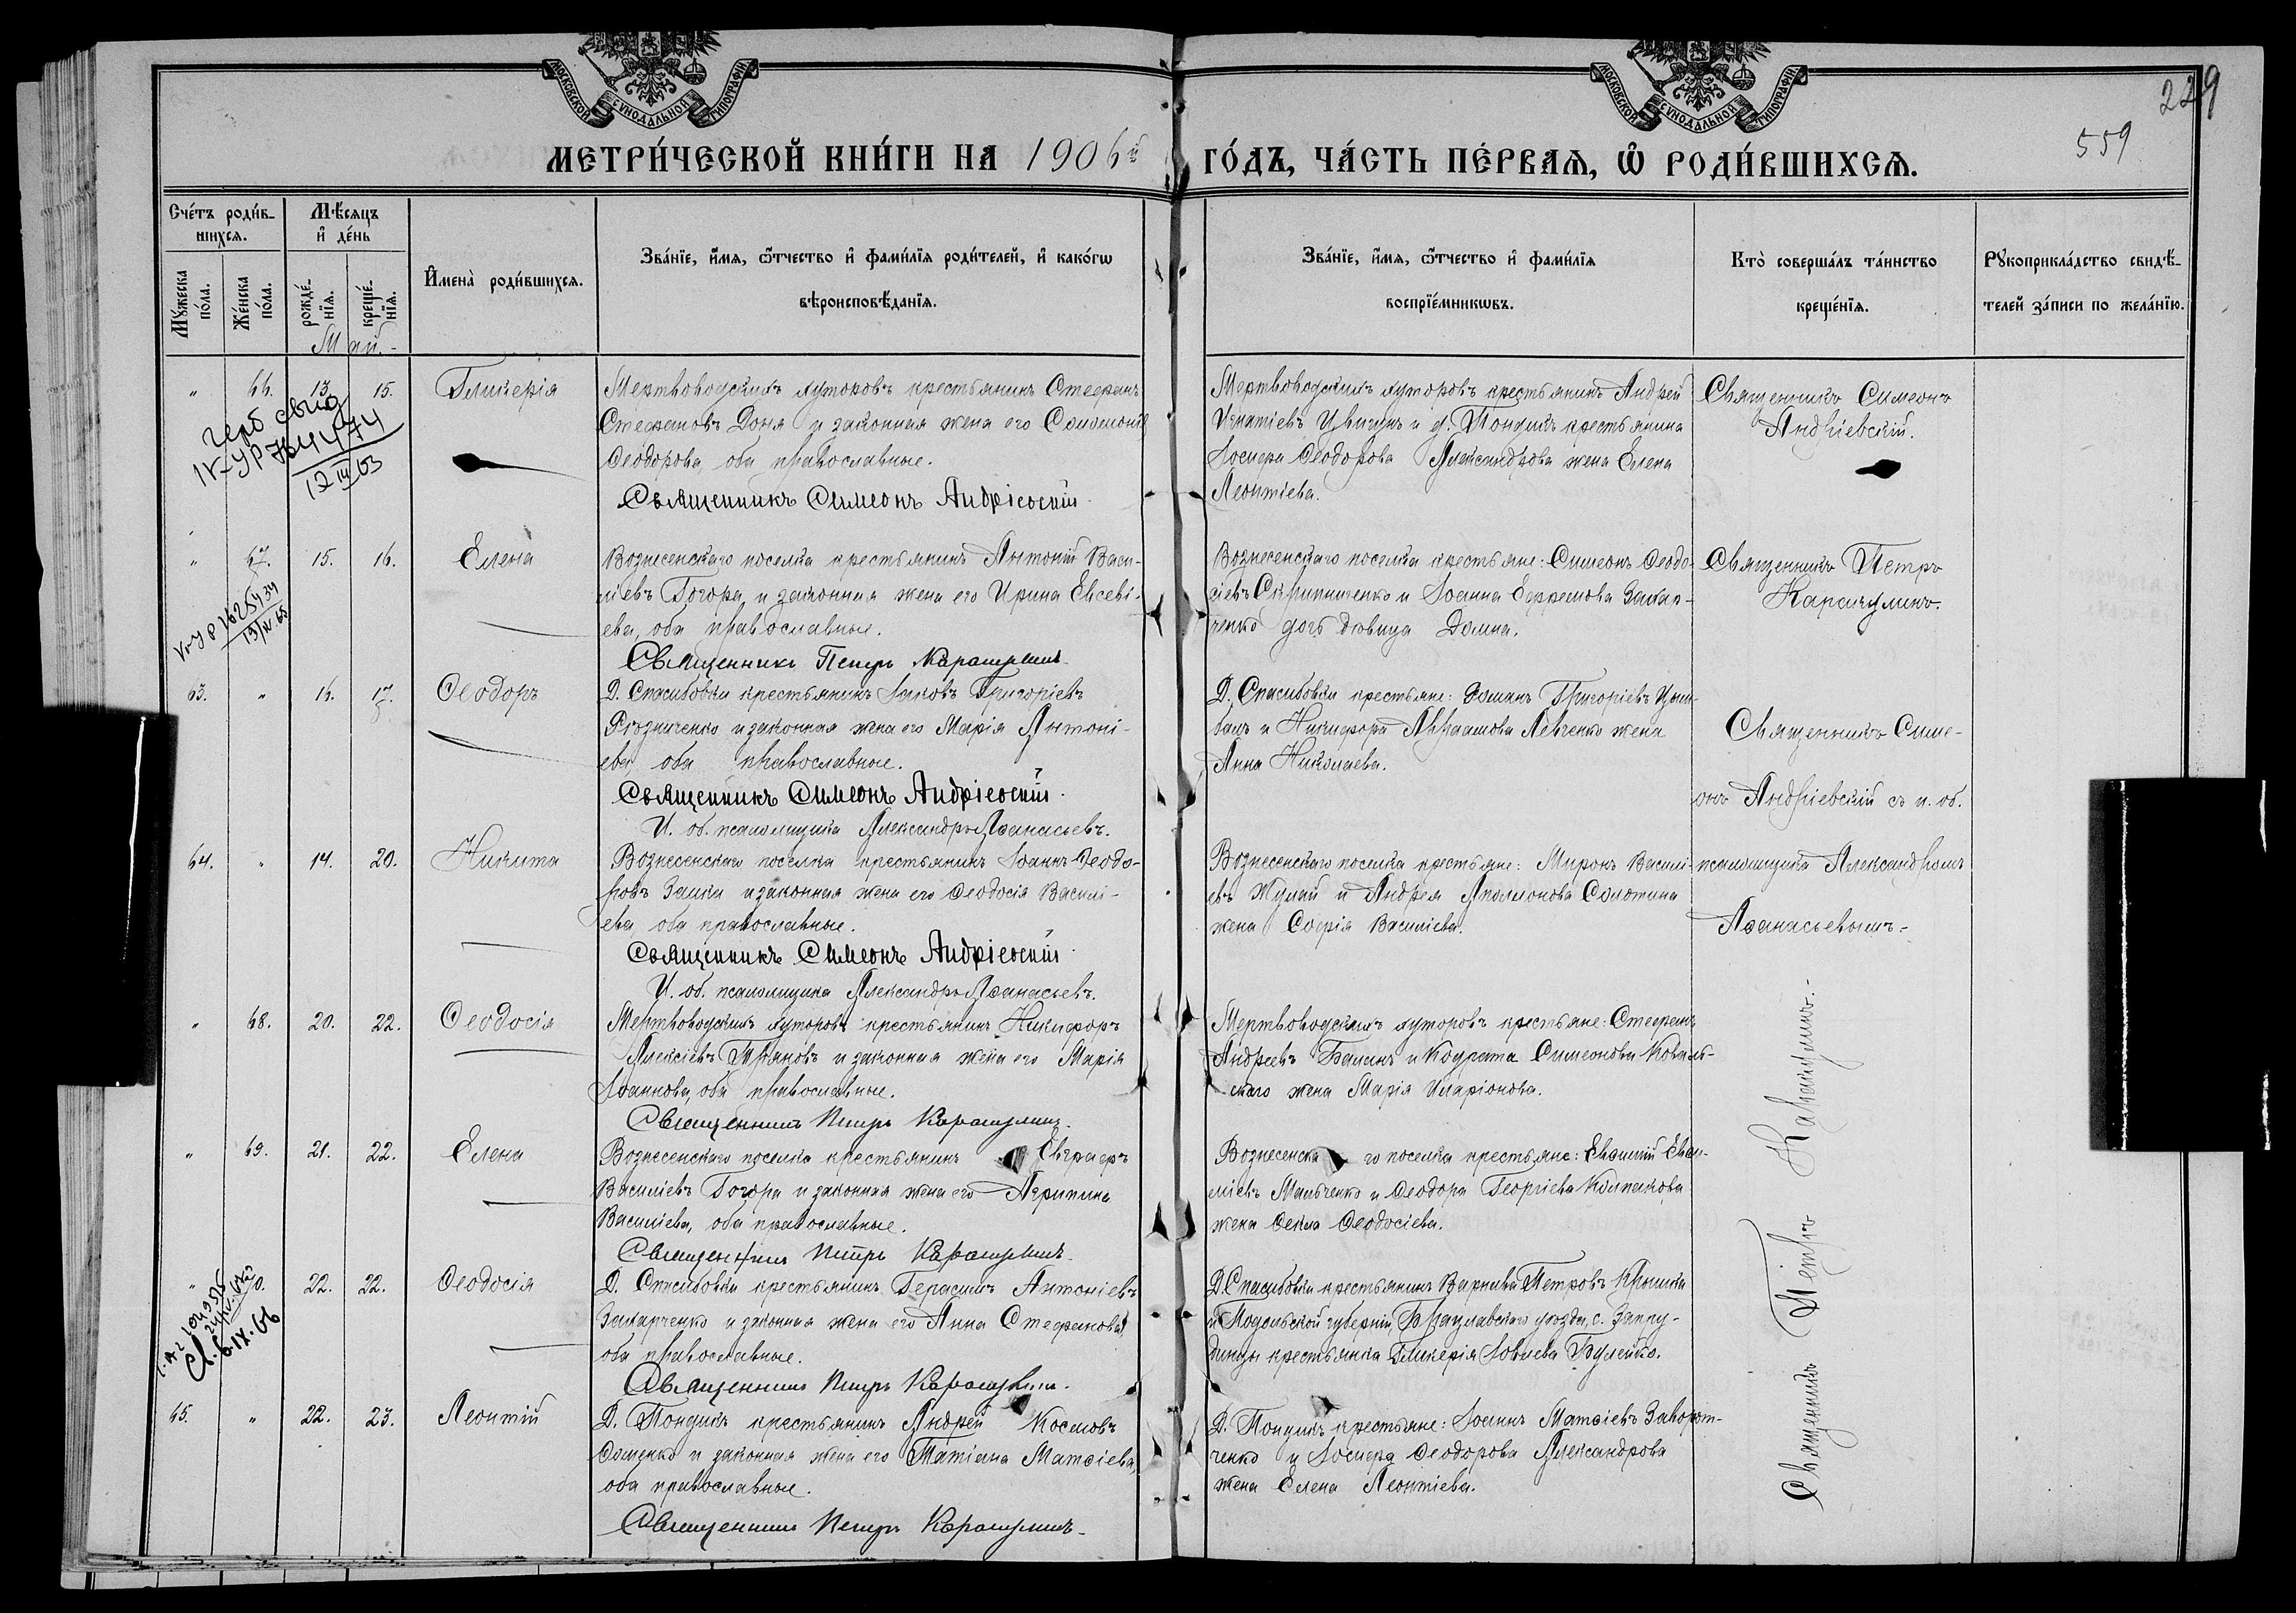 МОСКОВСКОЙ СѴНОДАЛЬНОЙ ТИПОГРАФІИ
МОСКОВСКОЙ СѴНОДАЛЬНОЙ ТИПОГРАФІИ
229
559
МЕТРИ́ЧЕСКОЙ КНИ́ГИ НА 1906й ГО́ДЪ, ЧА́СТЬ ПЕ́РВАѦ, Ѡ҆ РОДИ́ВШИХСѦ.
Сче́тъ роди́в-
шихсѧ.
Мꙋжеска по́ла.
Же́нска по́ла.
Мѣ́сѧцъ
и҆ де́нь
рожде́-
нїѧ.
креще́-
нїѧ.
И҆мена̀ роди́вшихсѧ.
Зва́нїе, и҆́мѧ, ѿтчество и҆ фами́лїѧ роди́телей, и҆ како́гѡ
вѣроисповѣ́данїѧ.
Зва́нїе, и҆́мѧ, ѿтчество и҆ фами́лїѧ
воспрїе́мникѡвъ.
Кто̀ соверша́лъ та́инство
креще́нїѧ.
Рꙋкоприкла́дство свидѣ́-
телей за́писи по жела́нїю.
Май.-
" 66. 13. 15. Гликерія
Мертвоводскихъ хуторовъ крестьянинъ Стефанъ
Стефановъ Доня и законная жена его Соломонія
Ѳеодорова, оба православные.
Священникъ Симеонъ Андріевскій
Мертвоводскихъ хуторовъ крестьянинъ Андрей
Игнатіевъ Цвигунъ и д. Пондикъ крестьянина
Іосифа Ѳеодорова Александрова жена Елена
Леонтіева.
Священникъ Симеонъ
Андріевскій.
" 67. 15. 16. Елена
Вознесенскаго поселка крестьянинъ Антоній Васи-
ліевъ Гогора и законная жена его Ирина Евсеві-
ева, оба православные.
Священникъ Петръ Карашулинъ
Вознесенскаго поселка крестьяне: Симеонъ Ѳеодо-
сіевъ Скрипниченко и Іоанна Ефремова Захар-
ченко дочь дѣвица Домна.
Священникъ Петръ
Карашулинъ.
63. " 16. 17. Ѳеодоръ
Д. Спасибовки крестьянинъ Іаковъ Григоріевъ
Рѣзниченко и законная жена его Марія Антоні-
ева, оба православные.
Священникъ Симеонъ Андріевскій
И. об. псаломщика Александръ Аѳанасьевъ.
Д. Спасибовки крестьяне: Романъ Григоріевъ
и Никифора Авраамова Левченко жена
Анна Николаева.
Священникъ Симе-
онъ Андріевскій съ и. об.
64. " 14. 20. Никита
Вознесенскаго поселка крестьянинъ Іоаннъ Ѳеодо-
ровъ Заика и законная жена его Ѳеодосія Васили-
ева, оба православные.
Священникъ Симеонъ Андріевскій
И. об. псаломщика Александръ Аѳанасьевъ.
Вознесенскаго поселка крестьяне: Миронъ Василі-
евъ Жулай и Андрея Аполлонова Солотина
жена Софія Василіева.
псаломщика Александромъ
Аѳанасьевымъ-
" 68. 20. 22. Ѳеодосія
Мертвоводскихъ хуторовъ крестьянинъ Никифоръ
Алексіевъ Трановъ и законная жена его Марія
Іоаннова, оба православные.
Священникъ Петръ Карашулинъ.
Мертвоводскихъ хуторовъ крестьяне: Стефанъ
Андреевъ Балинъ и Кодрата Симеонова Коваль-
скаго жена Марія Иларіонова.
" 69. 21. 22. Елена
Вознесенскаго поселка крестьянинъ Евграфъ
Василіевъ Гогора и законная жена его Агрипина
Василіева, оба православные.
Священникъ Петръ Карашулинъ.
Вознесенскаго поселка крестьяне: Евѳимій
Мальченко и Ѳеодора Георгіева Колпакова
жена Ѳекла Ѳеодосіева.
" 70. 22. 22. Ѳеодосія
Д. Спасибовки крестьянинъ Герасимъ Антоніевъ
Захарченко и законная жена его Анна Стефанова,
оба православные.
Священникъ Петръ Карашулинъ.
Д. Спасибовки крестьянинъ Варнава Петровъ Крышка
и Подольской губерніи, Брацлавскаго уѣзда, с.
крестьянка Гликерія Іовлева Булейко.
65. " 22. 23. Леонтій
Д. Пондикъ крестьянинъ Андрей Космовъ
и законная жена его Татіана Матѳіева,
оба православные.
Священникъ Петръ Карашулинъ.
Д. Пондикъ крестьяне: Іоаннъ Матѳіевъ Заворот-
ченко и Іосифа Ѳеодорова Александрова
жена Елена Леонтіева.
Священникъ Петръ Карашулинъ.-